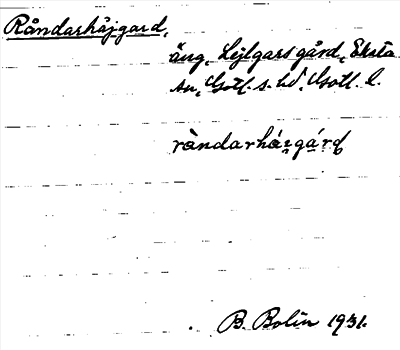 Råndarhäjgard,
äng, Lejlgars gård, Eksta
sn, Gotl. s. hd, Gotl. l.
ràndarháizgárd
B. Bolin 1931.